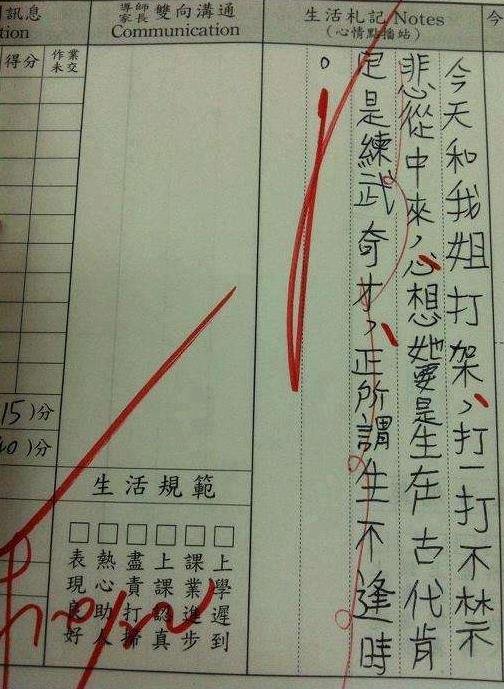 生活札記 Notes
(心情點播站)
今天和我姐打架，打一打不禁
悲從中來，心想她要是生在古代肯
定是練武奇才，正所謂生不逢時
。
導師家長 雙向溝通
Communication
生活規範
□上學遲到
□課業進步
□上課認真
□盡責打掃
□熱心助人
□表現良好
訊息
得分
作業未交
15)分
)分